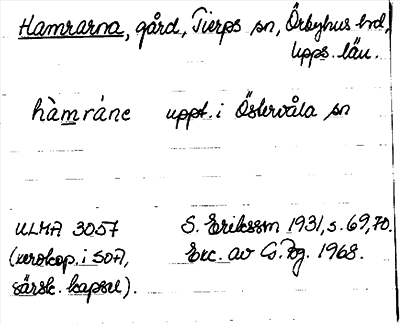 Hamrarna, gård, Tierps sn, Örbyhus hd,
Upps. län.
hàmráne uppt. i Östervåla sn
ULMA 3057 S. Eriksson 1931, s. 69, 70.
(xerokop. i SOA, Exc. av G. Bg. 1968.
särsk. kapsel).